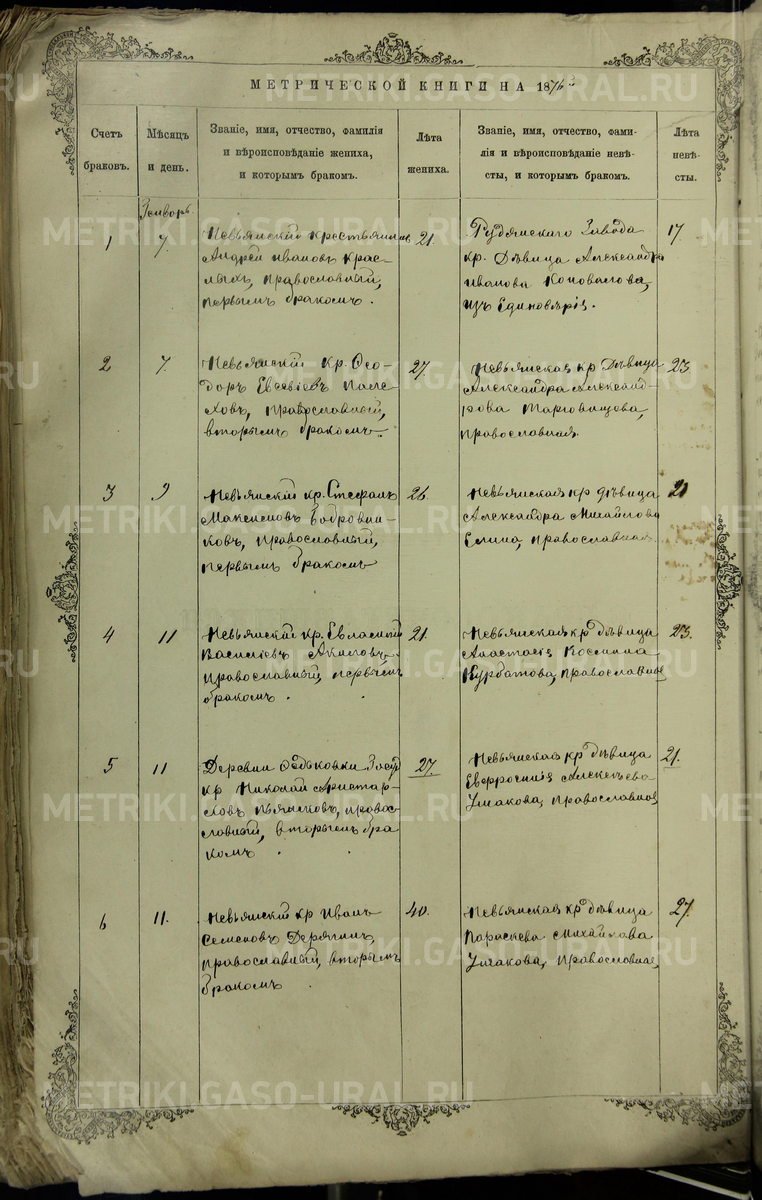 МЕТРИЧЕСКОЙ КНИГИ НА 1876
Счетъ браковъ.
Мѣсяцъ и день.
Званіе, имя, отчество, фамилія
и вѣроисповѣданіе жениха,
и которымъ бракомъ.
Лѣта жениха.
Званіе, имя, отчество, фами-
лія и вѣроисповѣданіе невѣ-
сты, и которымъ бракомъ.
Лѣта невѣ-
сты.
Январь
1
7.
Невьянскій крестьянинъ
Андрей Ивановъ Крас-
ныхъ, православный,
первымъ бракомъ.
21.
Рудянскаго Завода
кр. Дѣвица Александра
Иванова Коновалова,
изъ Единовѣрія.
17.
2
7.
Невьянскій кр. Ѳео-
доръ Евсевіевъ
православный,
вторымъ бракомъ.
27.
Невьянская кр Дѣвица
Александра Александ-
рова Торговищова,
православная.
23.
3
9
Невьянскій кр. Стефанъ
Максимовъ Бобровни-
ковъ, православный,
первымъ бракомъ
26.
Невьянская кр дѣвица
Александра Михайлова
Елина, православная
21
4
11
Невьянскій кр. Евлампій
Василіевъ Акиловъ,
православный, первымъ
бракомъ.
21.
Невьянская кр дѣвица
Анастасія Космина
Курбатова, православная
23.
5
11
Деревни Ѳедьковки
кр Николай Аристар-
ховъ Пьянковъ, право-
славный, вторымъ бра-
комъ.
27.
Невьянская кр дѣвица
Евфросинія Алексѣева
Ушакова, православная
21.
6
11.
Невьянскій кр Иванъ
Семеновъ Дерягинъ,
православный, вторымъ
бракомъ.
40.
Невьянская кр дѣвица
Параскева Михайлова
Ушакова, православная,
27.
METRIKI.GASO-URAL.RU